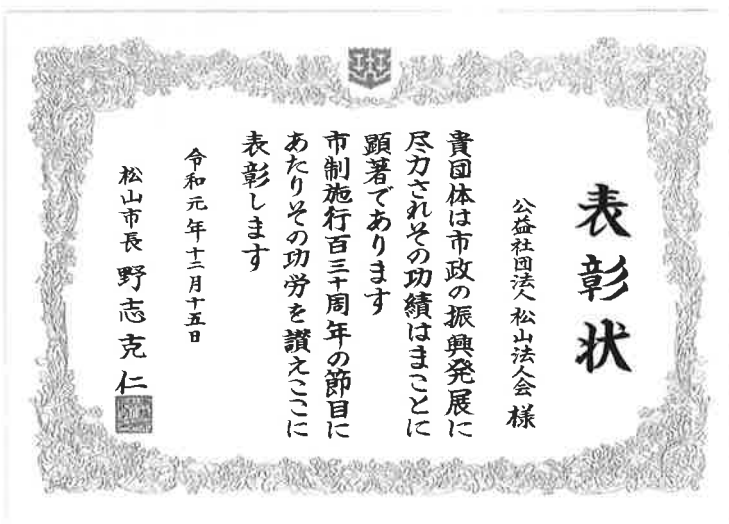 表彰状
公益社団法人 松山法人会 様
貴団体は市政の振興発展に
尽力されその功績はまことに
顕著であります
市制施行百三十周年の節目に
あたりその功労を讃えここに
表彰します
令和元年十二月十五日
松山市長 野志克仁